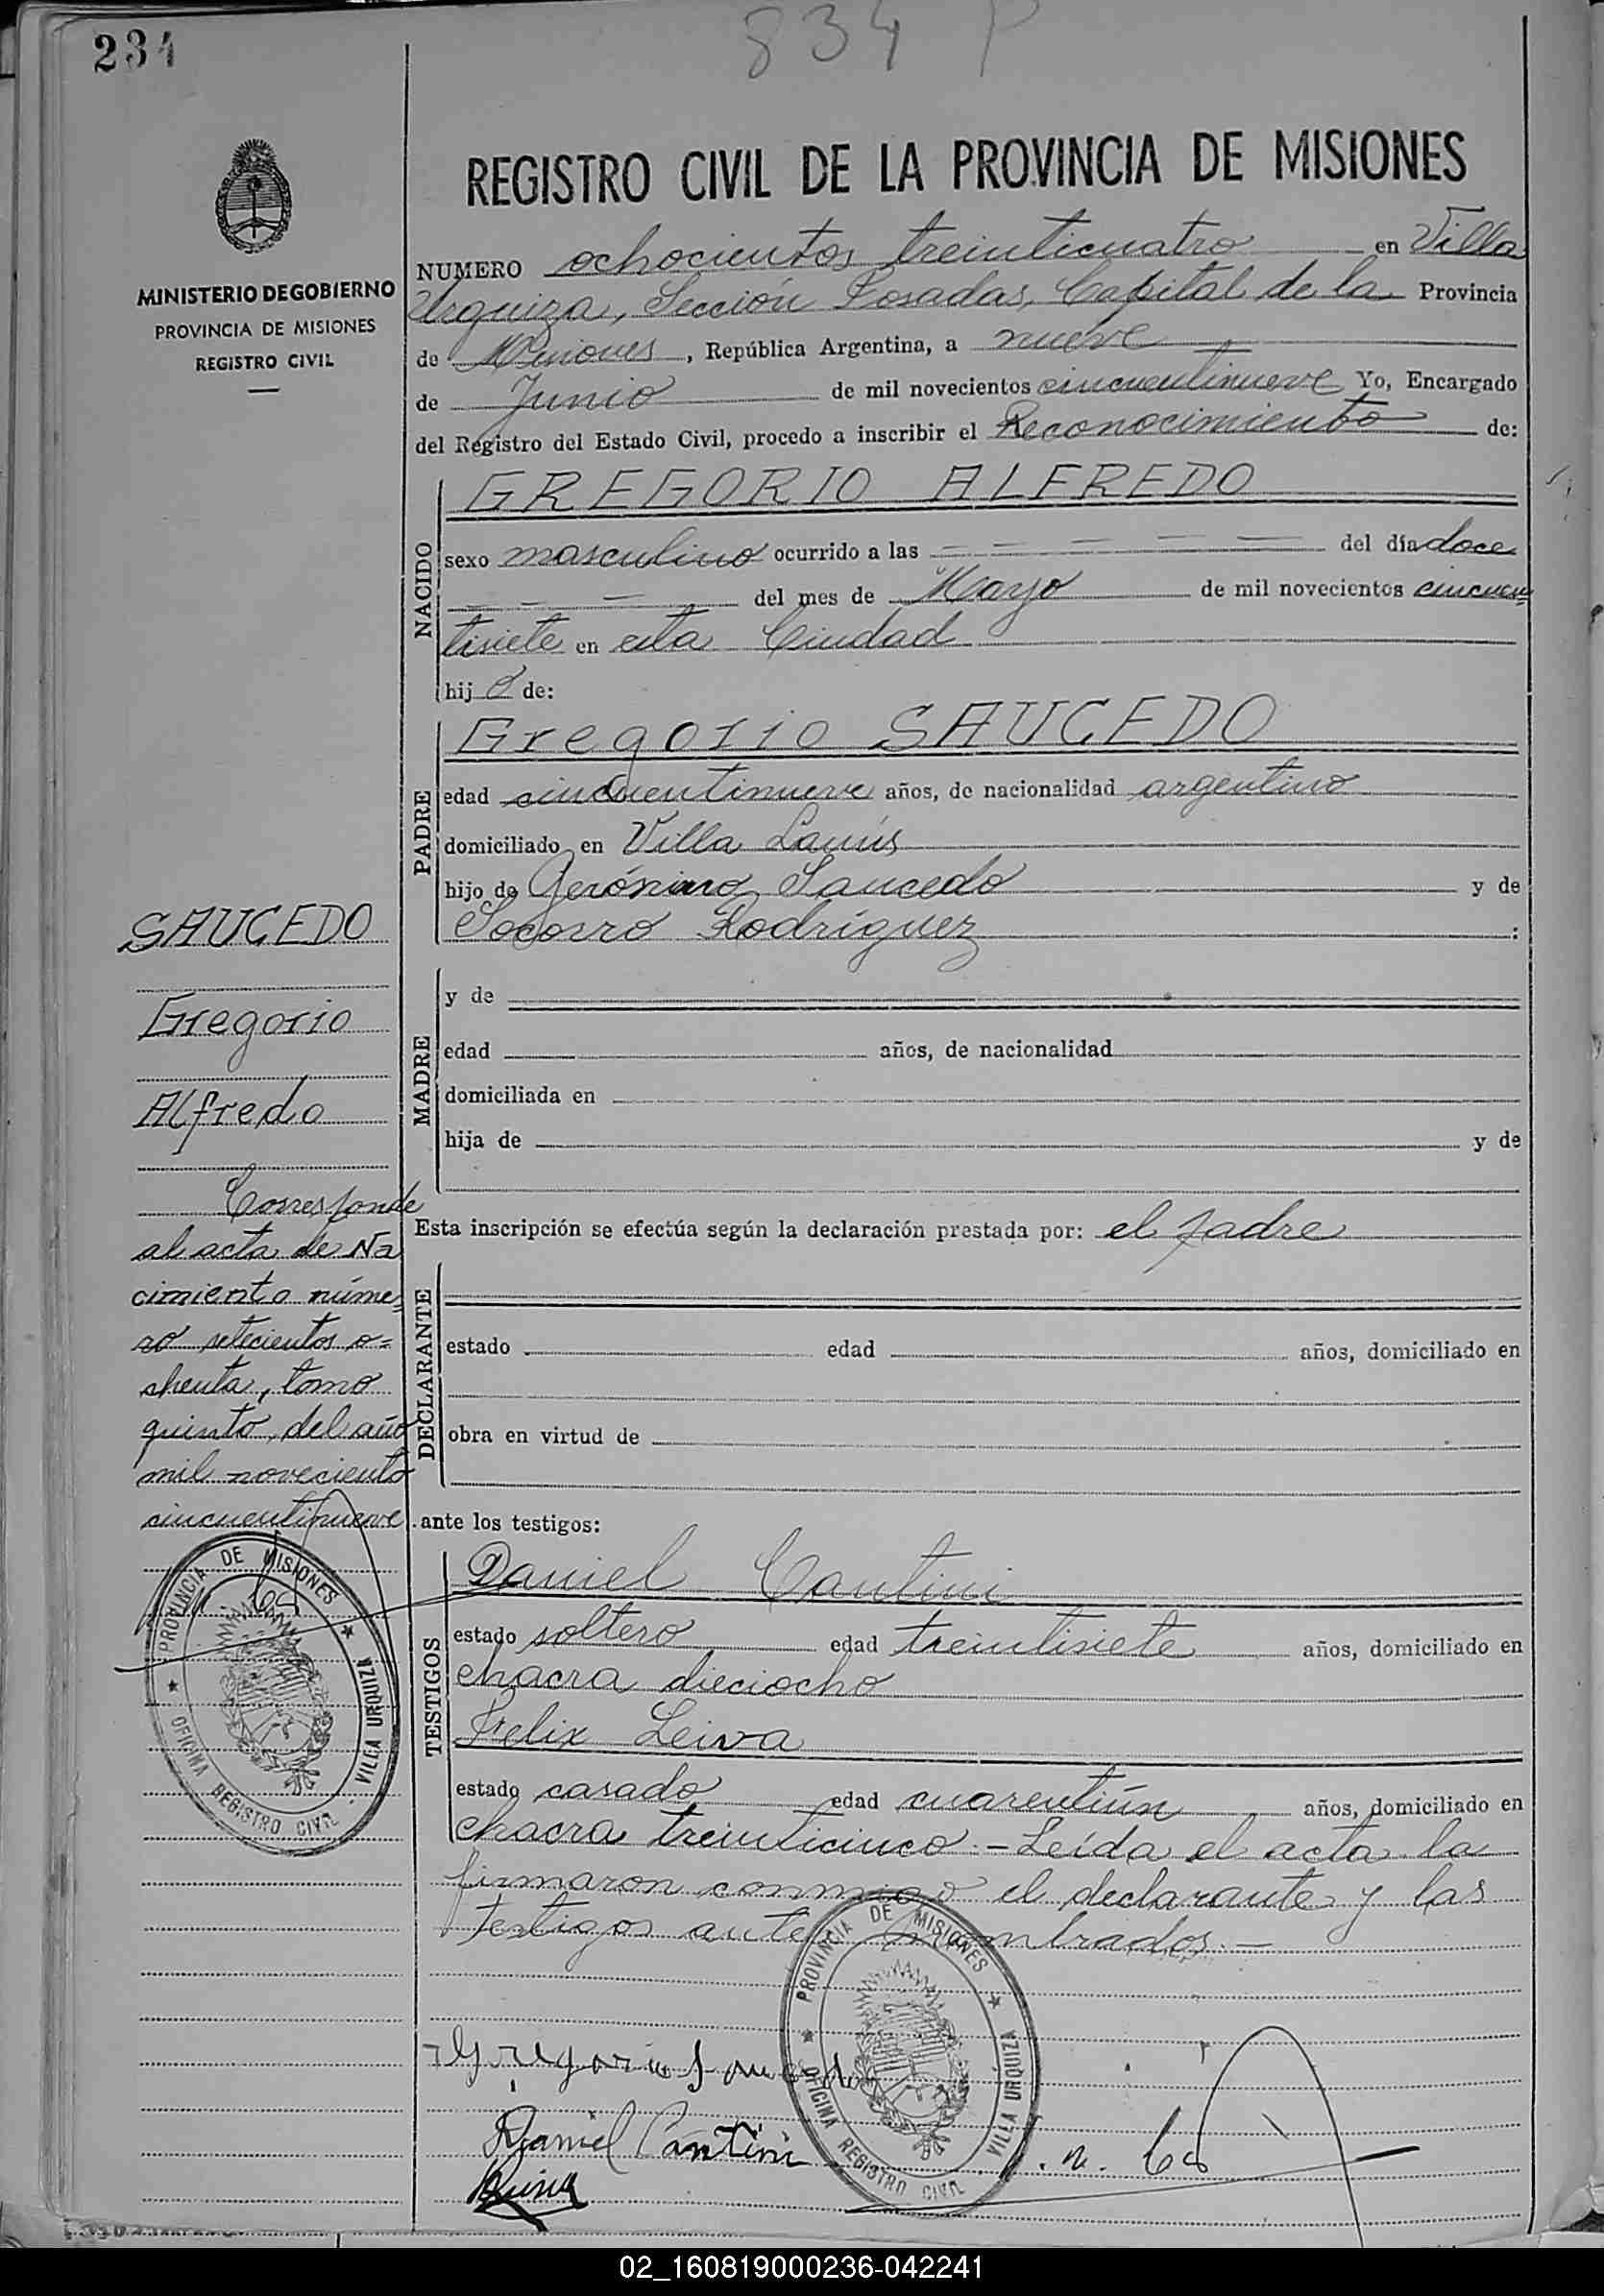 234
834 P
MINISTERIO DE GOBIERNO
PROVINCIA DE MISIONES
REGISTRO CIVIL
REGISTRO CIVIL DE LA PROVINCIA DE MISIONES
NUMERO ochocientos treinticuatro en Villa
Urquiza, Sección Posadas, Capital de la Provincia
de Misiones, República Argentina, a nueve
de Junio de mil novecientos cincuentinueve Yo, Encargado
del Registro del Estado Civil, procedo a inscribir el Reconocimiento de:
NACIDO
GREGORIO ALFREDO
sexo masculino ocurrido a las — — — — — del día doce
— — — del mes de Mayo de mil novecientos cincuen
tisiete en esta Ciudad
hijo de:
PADRE
Gregorio SAUCEDO
edad cincuentinueve años, de nacionalidad argentino
domiciliado en Villa Lanús
hijo de Gerónimo Saucedo y de
Socorro Rodríguez :
MADRE
y de
edad años, de nacionalidad
domiciliada en
hija de y de
Esta inscripción se efectúa según la declaración prestada por: el padre
DECLARANTE
estado edad años, domiciliado en
obra en virtud de
ante los testigos:
TESTIGOS
Daniel Cantini
estado soltero edad treintisiete años, domiciliado en
chacra dieciocho
Felix Leiva
estado casado edad cuarentiún años, domiciliado en
chacra treinticinco.- Leída el acta la
firmaron conmigo el declarante y los
testigos ante nombrados.—
SAUCEDO
Gregorio
Alfredo
Corresponde
al acta de Na
cimiento núme=
ro setecientos o=
chenta, tomo
quinto, del año
mil noveciento
cincuentinueve.
PROVINCIA DE MISIONES
OFICINA REGISTRO CIVIL - VILLA URQUIZA
Gregorio Saucedo
Daniel Cantini
PROVINCIA DE MISIONES
OFICINA REGISTRO CIVIL VILLA URQUIZA
02_160819000236-042241